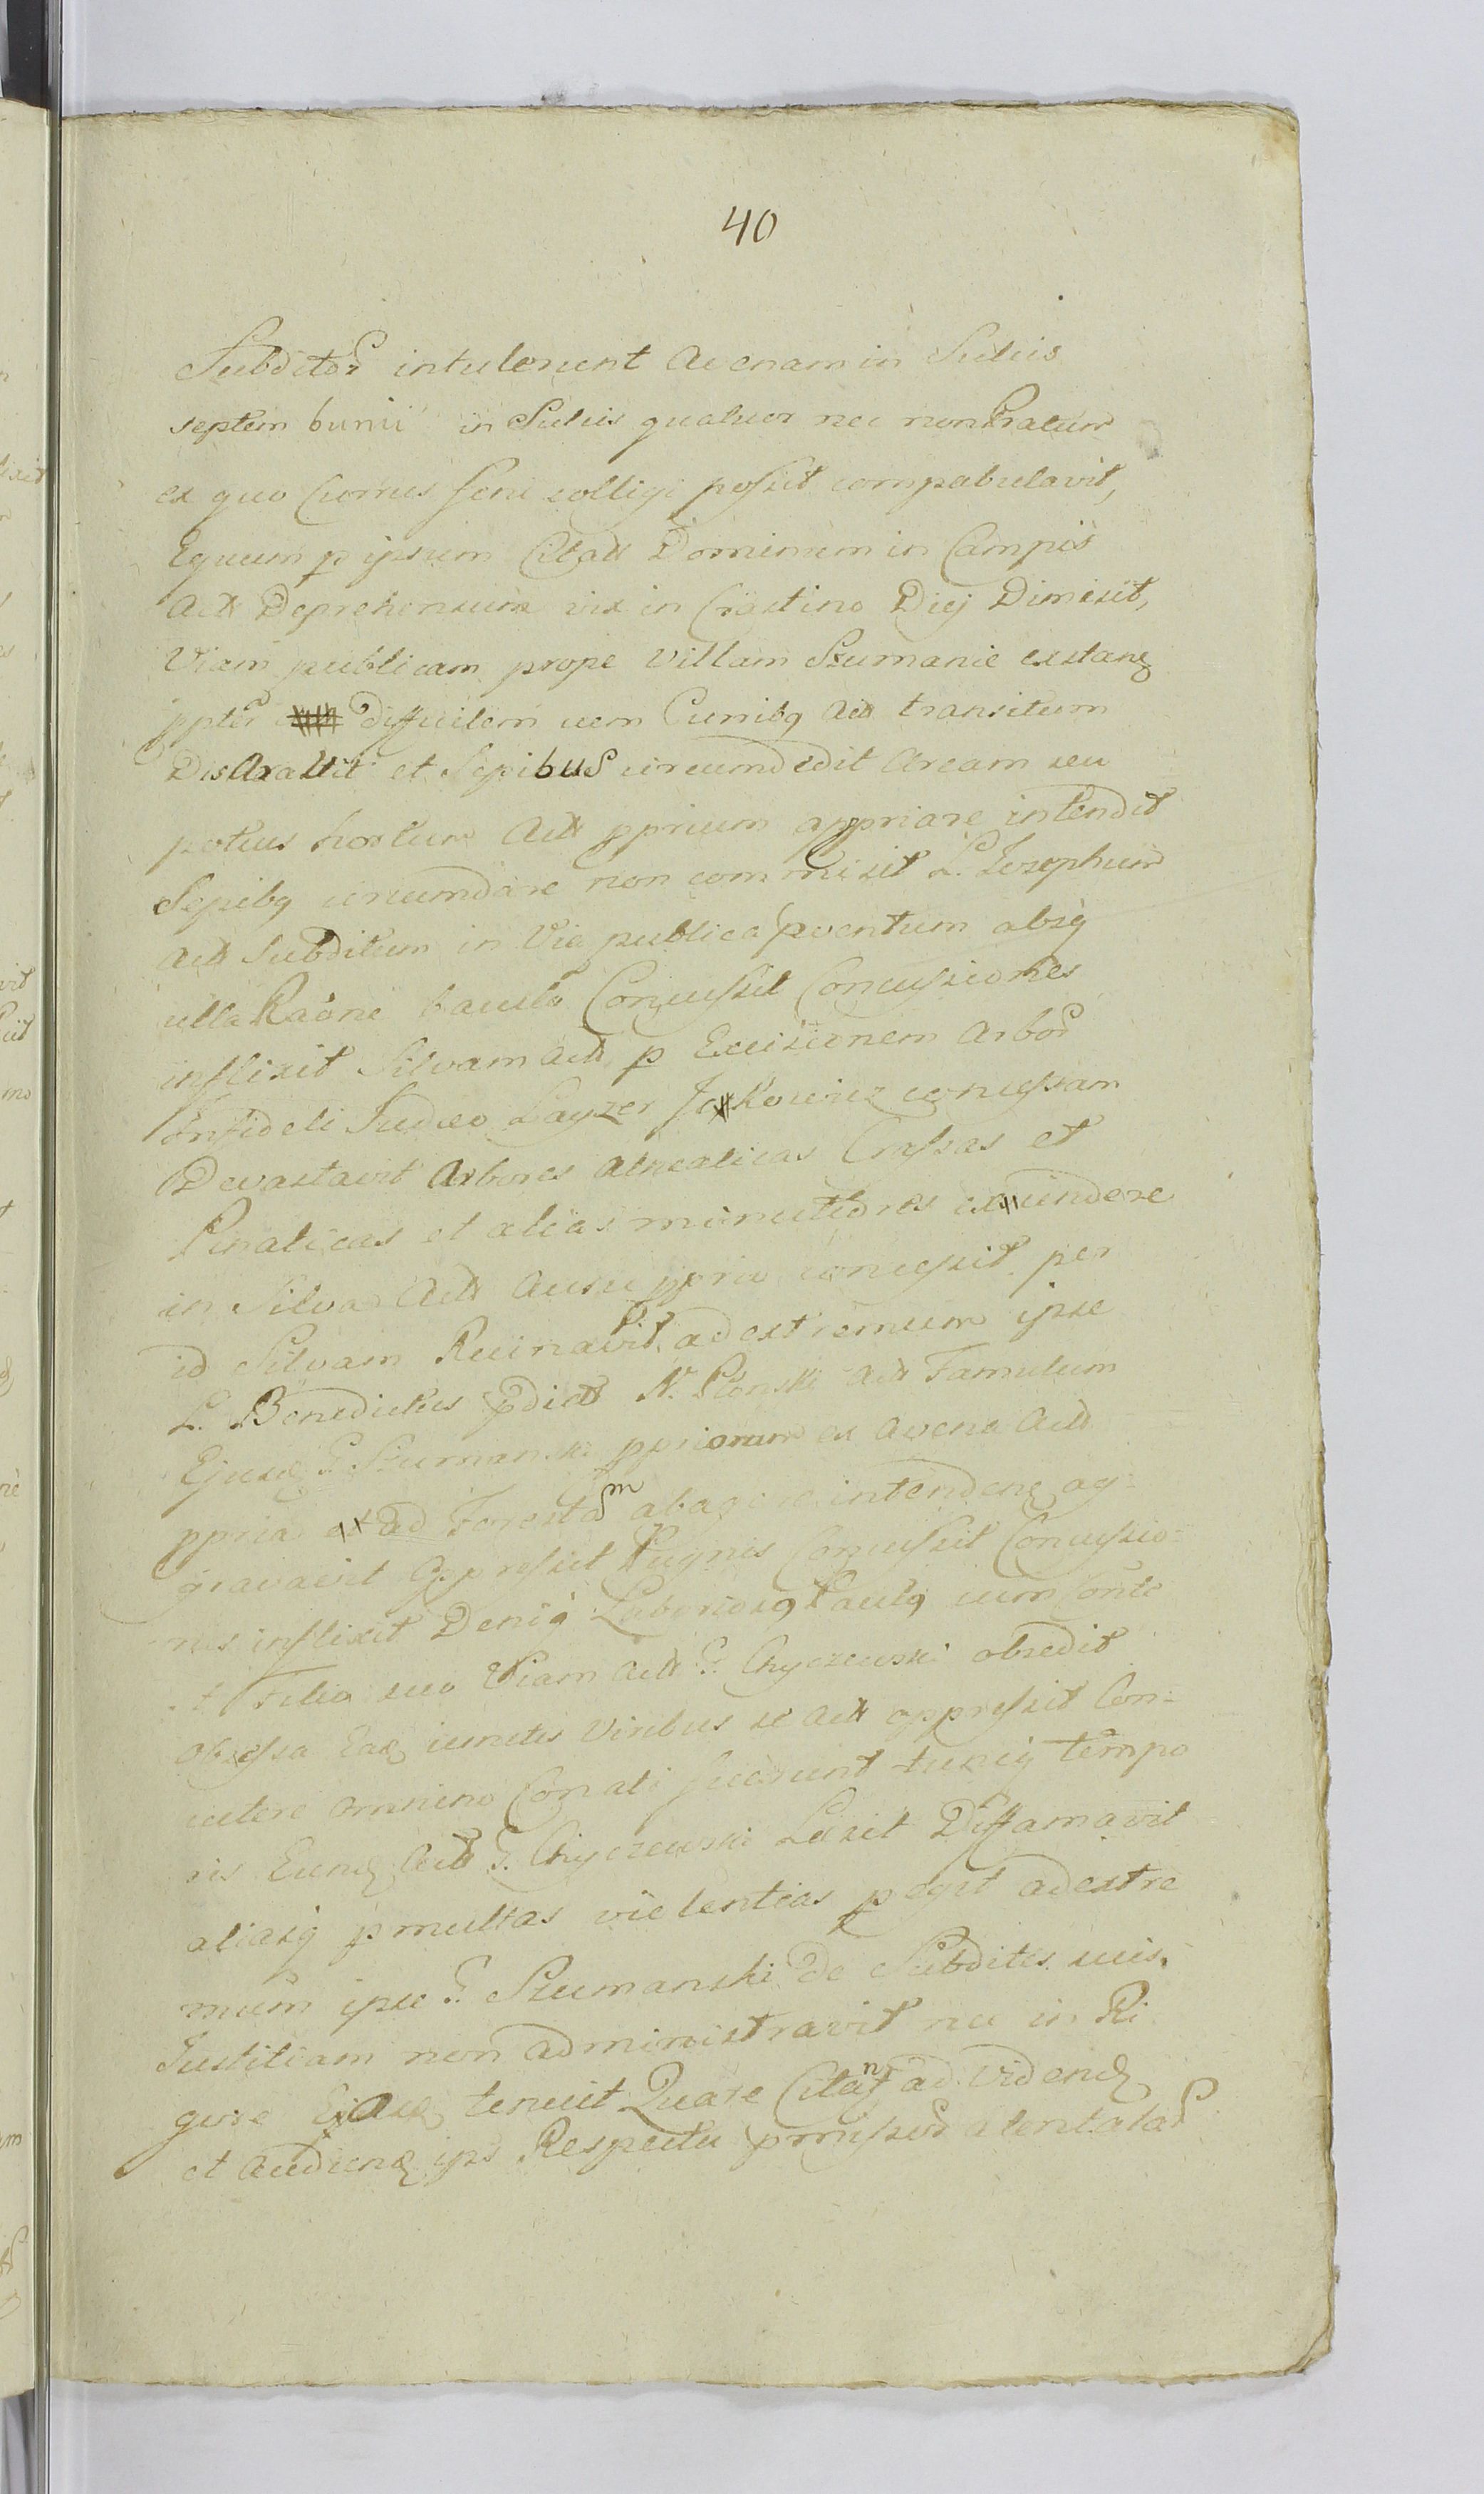 40
Subditor intulerunt Avenam in Sulcis
septem bunii in Sulcis quatuor nec non Pratum
ex quo Currus feni colligi possit compabulavit,
Equum p ipsum Citatt Dominum in Campis
Actt Deprehensum vix in Crastino Diej Dimisit,
Viam publicam prope Villam Szumanie extanq
ppter difficilem cum Curribq Actt transitum
DisAravit et Sepibus circumdedit Aream seu
potius hortum Actt pprium appriare intendit
Sepibq circumdare non commisit L. Josephum
Actt Subditum in Via publica pventum absq
ulla Raone baculo Concussit Concussiones
inflixit Silvam Actt p Excisionem Arbor
Infideli Judæo Layzer Jckowicz concessam
Devastavit Arbores Alnealicas Crassas et
Pinalicas et alias minutiores excindere
in Silva Actt Ausu pprio concessit per
id Silvam Ruinavit, ad extremum ipse
L. Benedictus pdict N. Plonski Actt Famulum
Ejusq G. Szumanski ppriorum ex Avena Actt
ppria ad Forestam abagere intendenq ag-
gravavit Oppressit Pugnis Concussit Concussio-
nes inflixit Deniq Laboriosq Paulq cum Conte
et Filio suo Viam Actt G. Chyczewski obsedit
Obsessa Eaq iunctis Viribus se Actt oppressit Con-
cutere omnino Conati fuerunt tuncq tempo
ris Eunq Actt G. Chyczewski Læsit Diffamavit
aliasq pmultas violentias pegit ad extre
mum ipse G. Szumanski De Subditis suis
Justitiam non administravit nec in Ri
gore Ejusq tenuit Quare Citant ad Vidend
et Audienq ips Respectu pmissor atentator